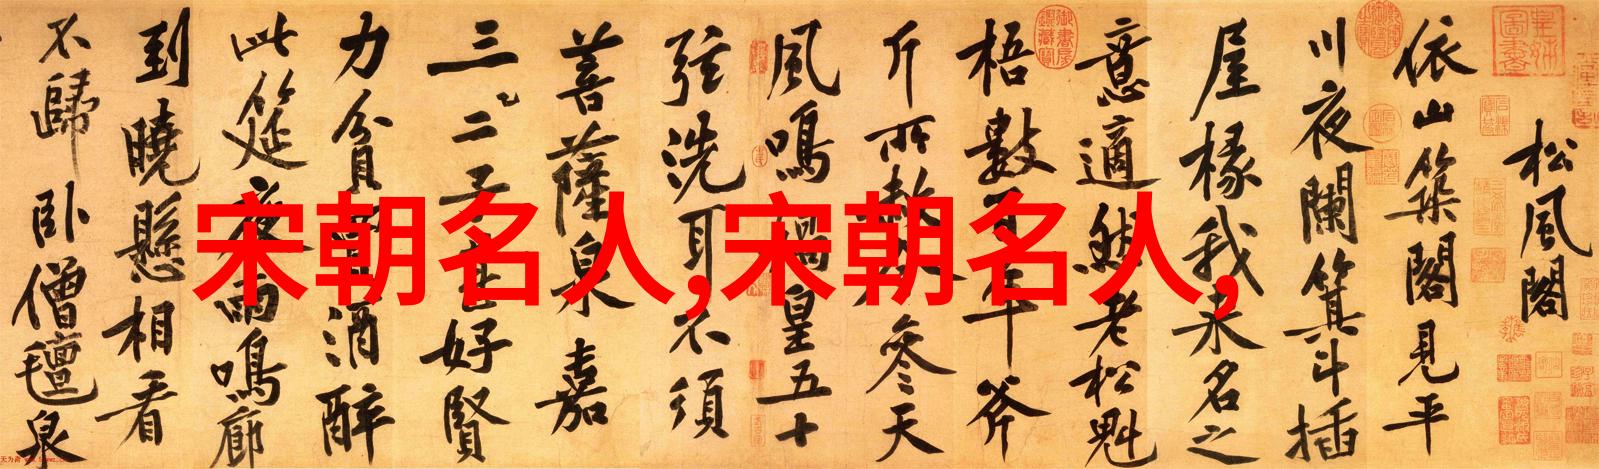 松風閣
依山築閣見平
川夜闌箕斗插
屋椽我来名之
意適然老松魁
梧數百年斧
斤所赦今參天
風鳴媧皇五十
弦洗耳不須
菩薩泉嘉
三二子甚好賢
力貧買酒醉
此筵夜雨鳴廊
到曉懸相看
不歸臥僧氈泉
宋朝名人,宋朝名人,
皇姊圖書
御書房鑑藏寶